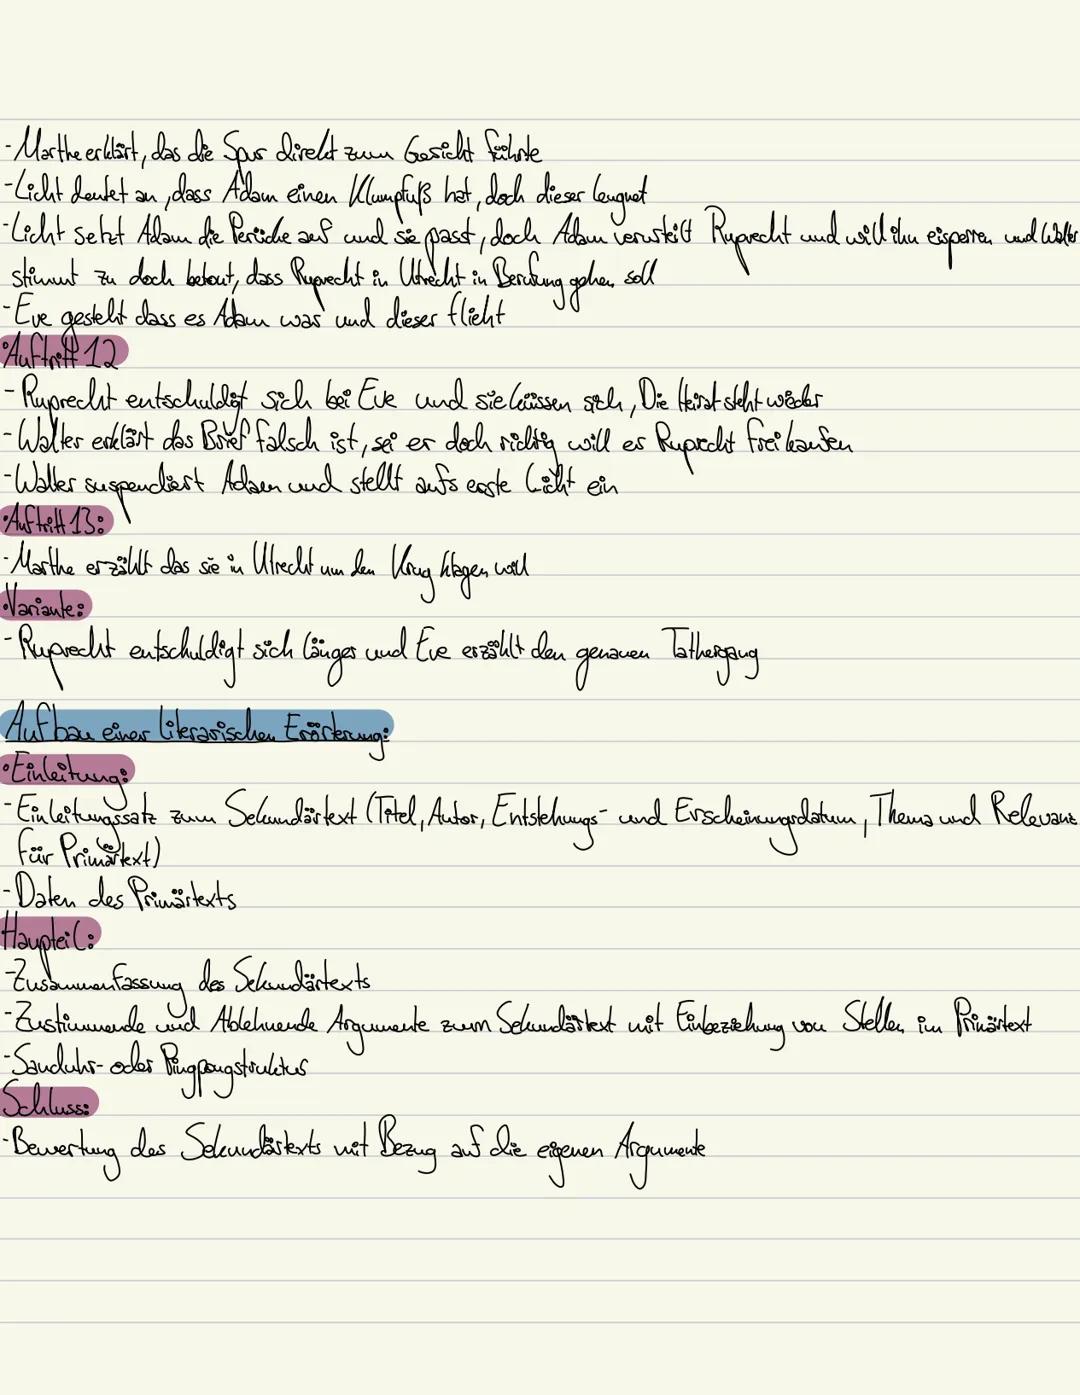 - Marthe erklärt, das die Spur direkt zum Gesicht führte
- Licht deutet an, dass Adam einen Klumpfuß hat, doch dieser leugnet
- Licht setzt Adam die Perücke auf und sie passt, doch Adam verurteilt Ruprecht und will ihn eisperren und Walter
stimmt zu doch betont, dass Ruprecht in Utrecht in Berufung gehen soll
- Eve gesteht dass es Adam war und dieser flieht
•Auftritt 12
- Ruprecht entschuldigt sich bei Eve und sie küssen sich, Die Heirat steht wieder
- Walter erklärt das Brief falsch ist, sei er doch richtig will er Ruprecht freikaufen
- Walter suspendiert Adam und stellt aufs erste Licht ein
•Auftritt 13:
- Marthe erzählt das sie in Utrecht um den Krug klagen will
•Variante:
- Ruprecht entschuldigt sich länger und Eve erzählt den genauen Tathergang
Aufbau einer literarischen Erörterung:
•Einleitung:
- Einleitungssatz zum Sekundärtext (Titel, Autor, Entstehungs- und Erscheinungsdatum, Thema und Relevanz
für Primärtext)
- Daten des Primärtexts
Haupteil:
- Zusammenfassung des Sekundärtexts
- Zustimmende und Ablehnende Argumente zum Sekundärtext mit Einbeziehung von Stellen im Primärtext
- Sanduhr- oder Pingpongstruktur
Schluss:
- Bewertung des Sekundärtexts mit Bezug auf die eigenen Argumente